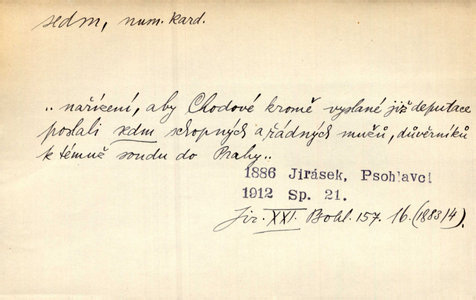 sedm, num. kard.
.. nařízení, aby Chodové kromě vyslané již deputace
poslali sedm schopných a řádných mužů, důvěrníků
k témuž soudu do Prahy..
1886 Jirásek, Psohlavci
1912 Sp. 21.
Jir. XXI. Bohl. 157. 16. (1883/4).